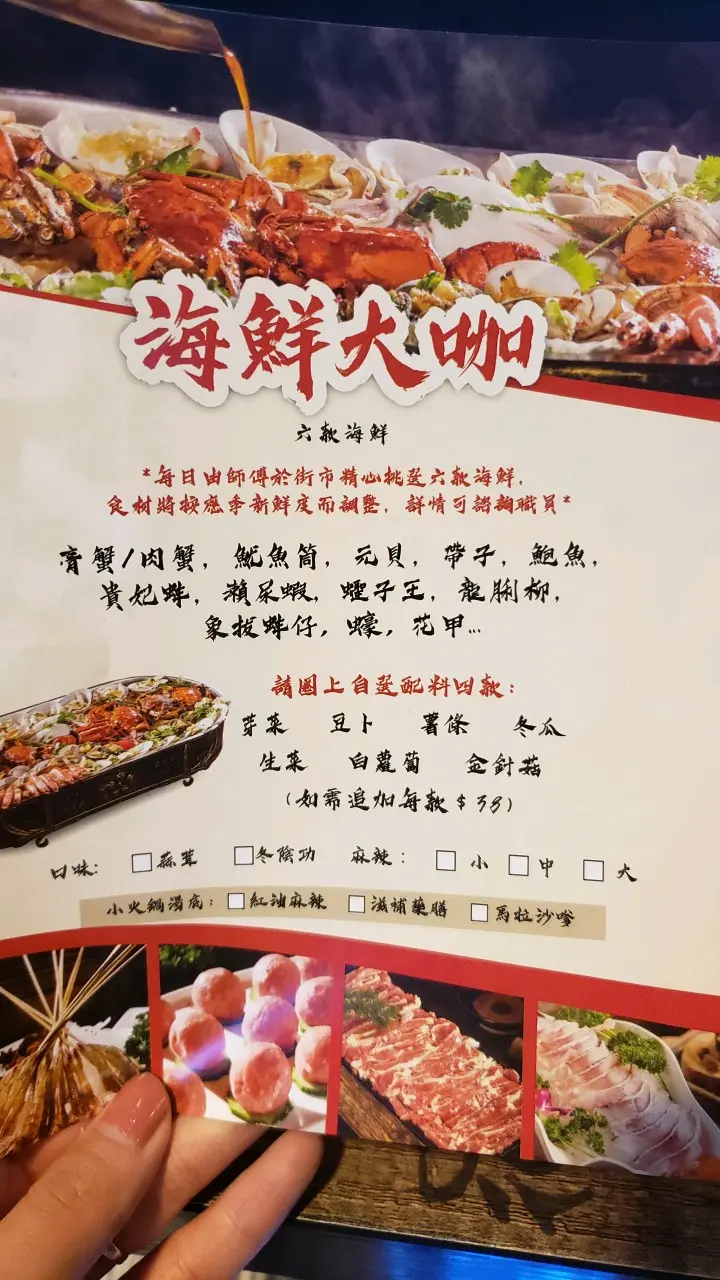 海鮮大咖
六款海鮮
*每日由師傅於街市精心挑選六款海鮮,
食材將按應季新鮮度而調整, 詳情可諮詢職員*
膏蟹/肉蟹, 魷魚筒, 元貝, 帶子, 鮑魚,
貴妃蚌, 瀨尿蝦, 蟶子王, 龍脷柳,
象拔蚌仔, 蠔, 花甲...
請圈上自選配料四款:
芽菜 豆卜 薯條 冬瓜
生菜 白蘿蔔 金針菇
(如需追加每款$38)
口味: □蒜茸 □冬陰功 麻辣: □小 □中 □大
小火鍋湯底: □紅油麻辣 □滋補藥膳 □馬拉沙嗲